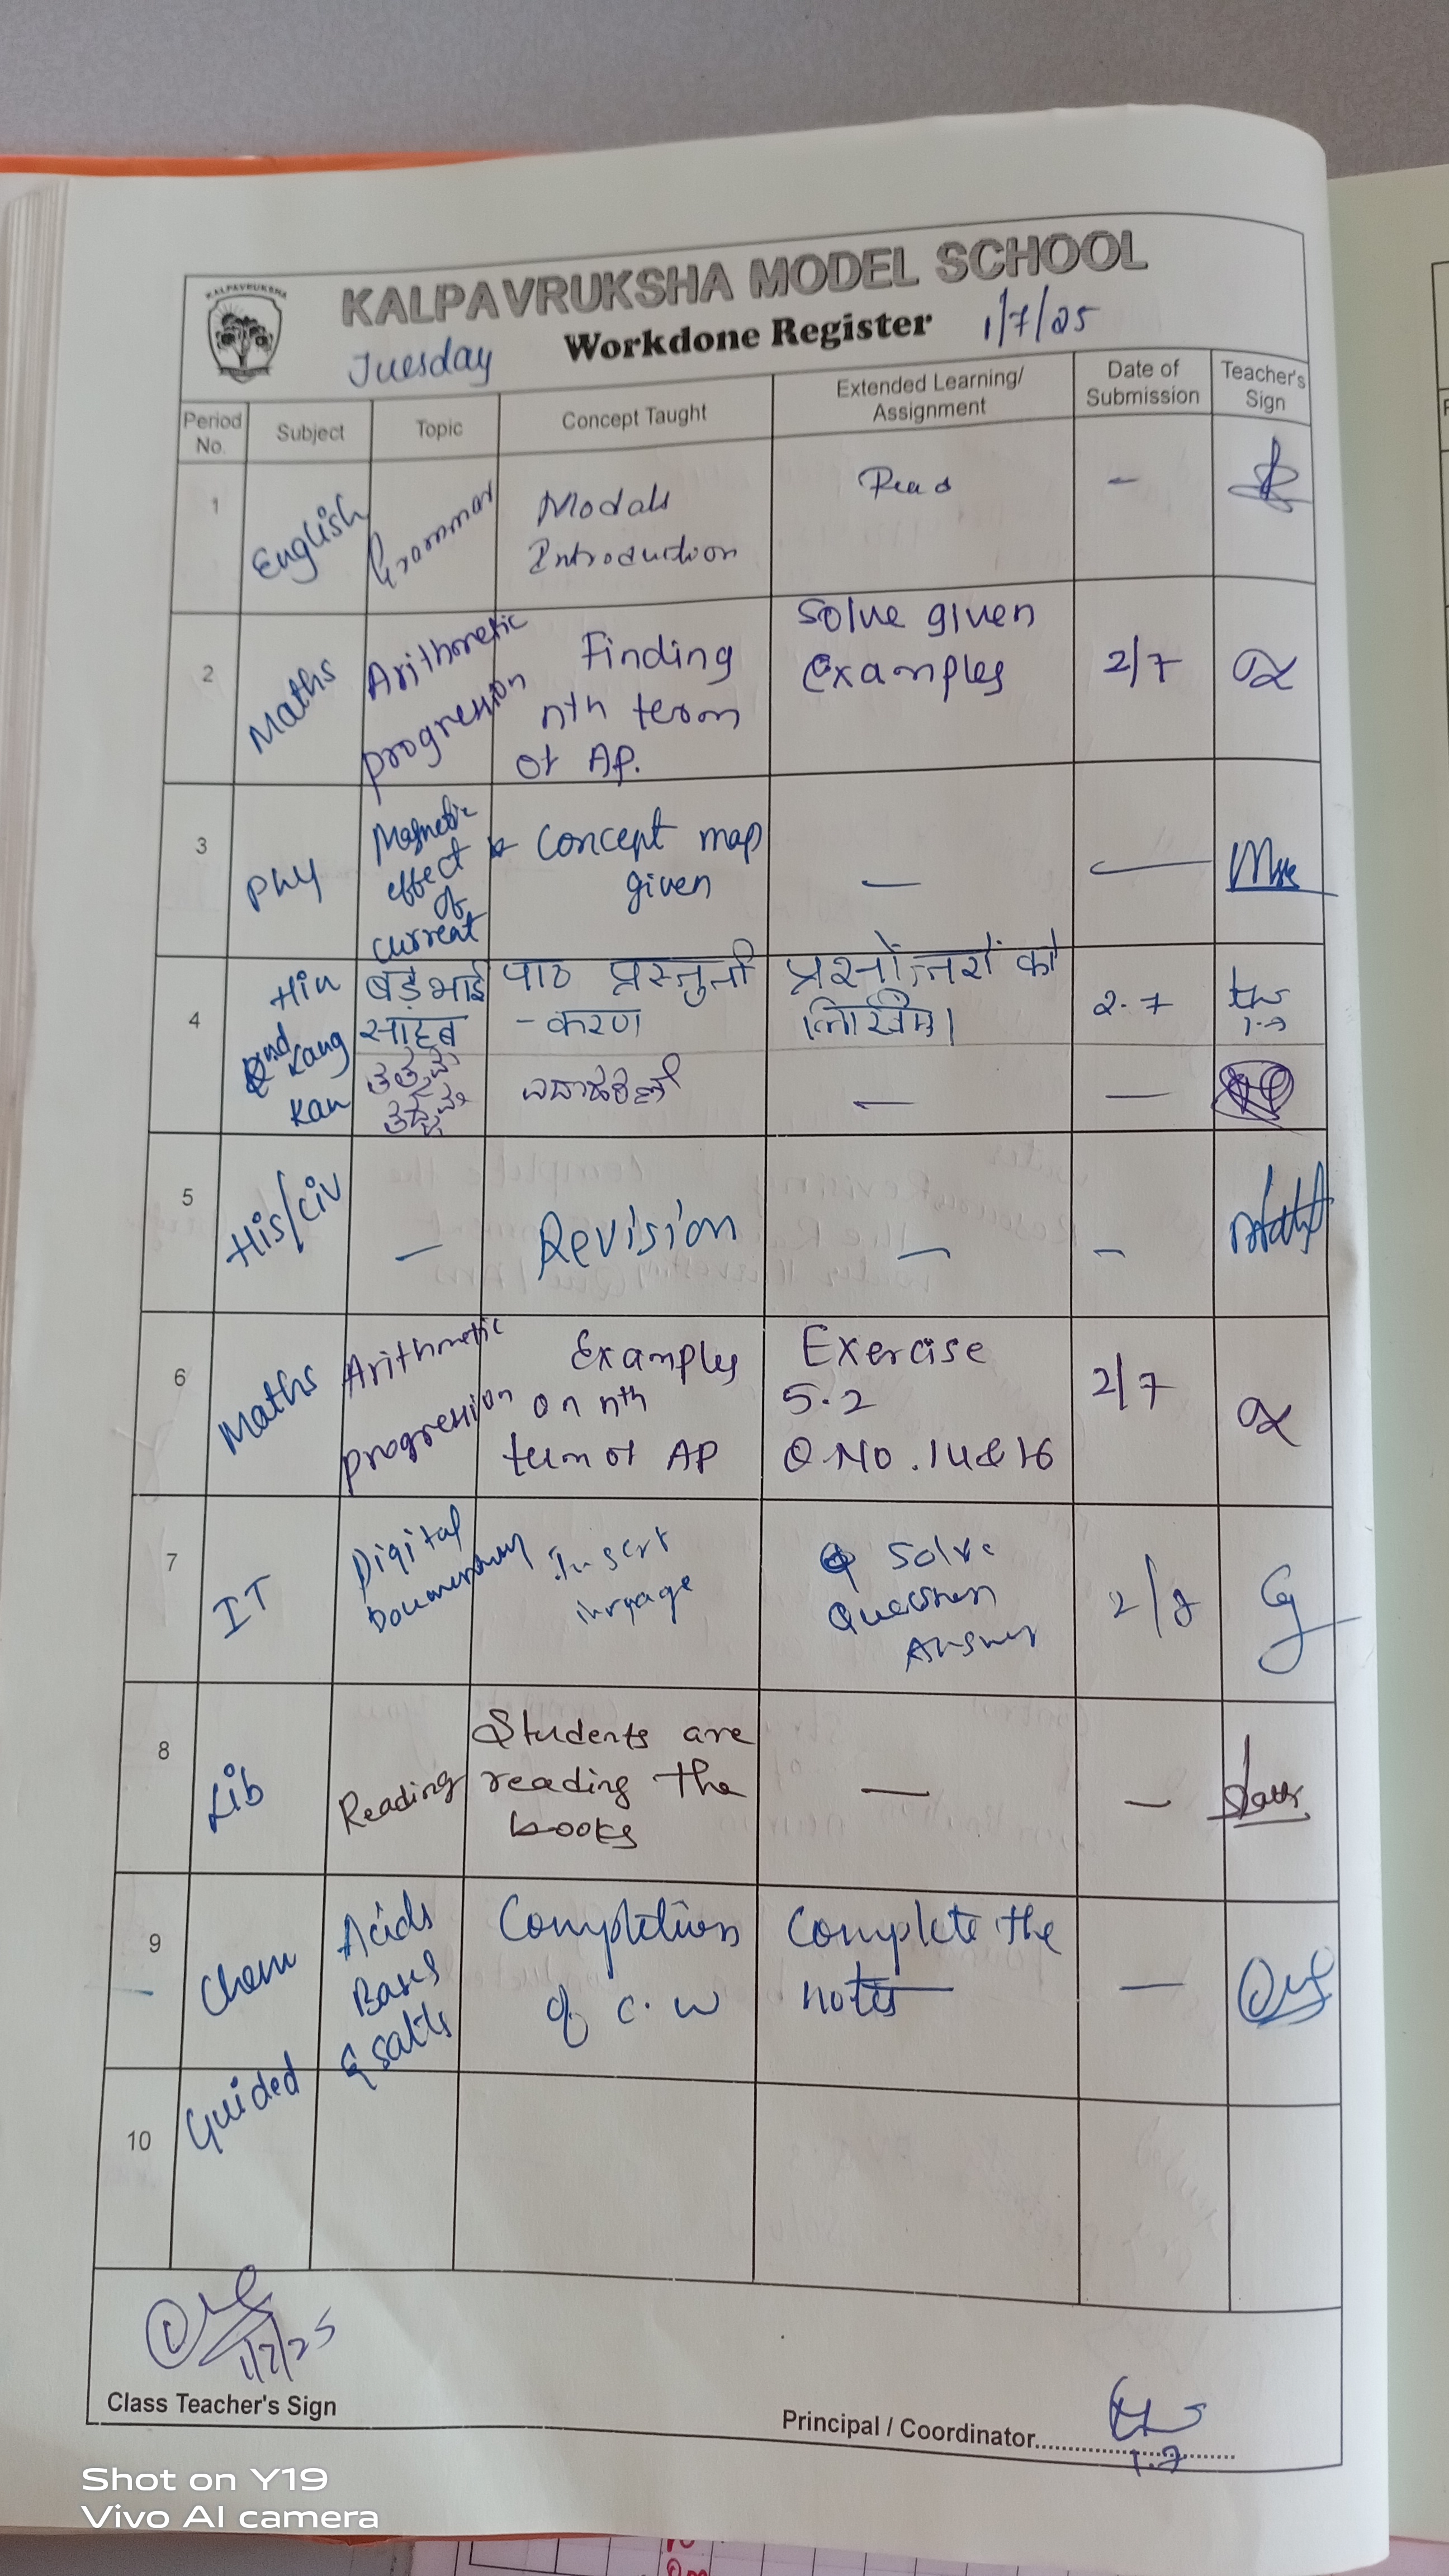 KALPAVRUKSHA
KALPAVRUKSHA MODEL SCHOOL
Tuesday Workdone Register 1/7/25
Period No. Subject Topic Concept Taught Extended Learning/ Assignment Date of Submission Teacher's Sign
1 English Grammar Modals Introduction Read -
2 Maths Arithmetic progression Finding nth term of AP. Solve given examples 2/7
3 Phy Magnetic effect of current Concept map given — —
4 Hin बड़े भाई साहब पाठ प्रस्तुती - करण प्रश्नोंत्तरों को लिखिए। 2.7
2nd Lang
Kan — —
5 His/Civ — Revision — —
6 Maths Arithmetic progression Examples on nth term of AP Exercise 5.2 Q.No. 14 & 16 2/7
7 IT Digital Insert image Solve Question Answer
8 Lib Reading Students are reading the books — —
9 Chem Acids Bases & salts Completion of c.w Complete the notes —
10 Guided
1/7/25
Class Teacher's Sign
Principal / Coordinator
1.7
Shot on Y19
Vivo AI camera